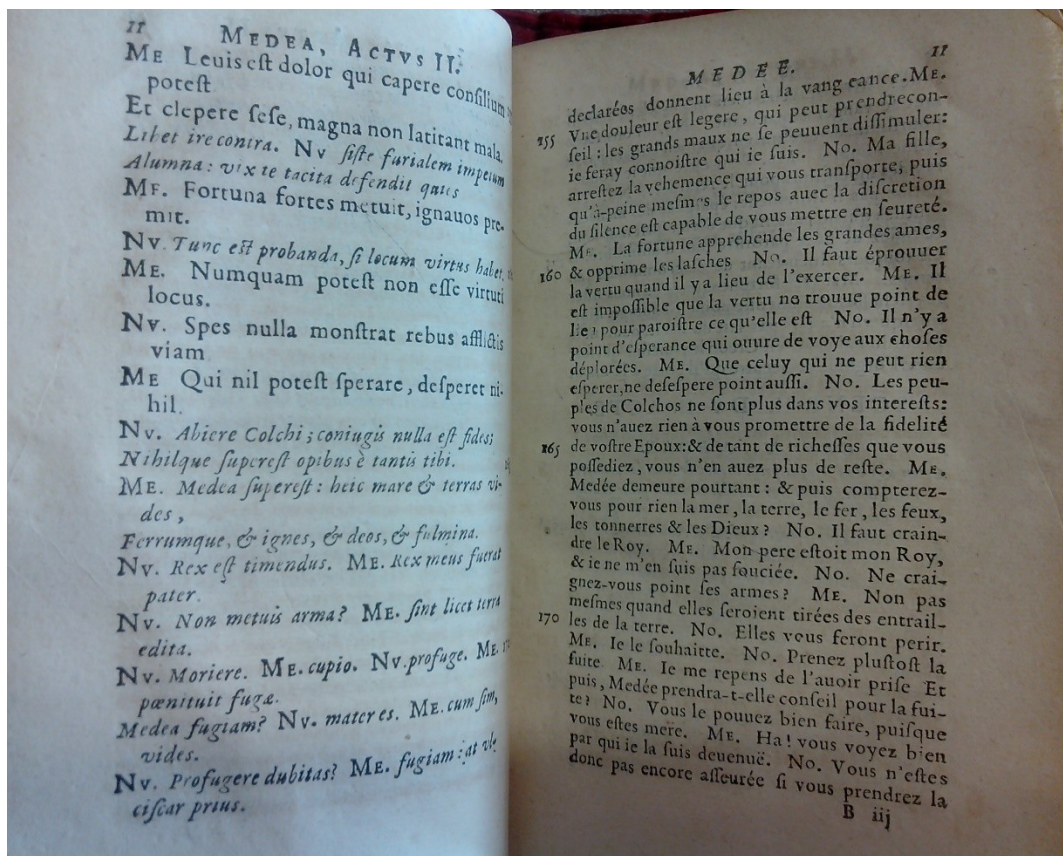 11
MEDEA, ACTVS II.
ME Leuis eſt dolor qui capere conſilium
poteſt
Et clepere ſeſe, magna non latitant mala.
Libet ire contra. NV ſiſte furialem impetum
Alumna: vix te tacita defendit quies
ME. Fortuna fortes metuit, ignauos pre-
mit.
NV. Tunc eſt probanda, ſi locum virtus habet,
ME. Numquam poteſt non eſſe virtuti
locus.
NV. Spes nulla monſtrat rebus afflictis
viam
ME Qui nil poteſt ſperare, deſperet ni-
hil.
NV. Abiere Colchi; coniugis nulla eſt fides;
Nihilque ſupereſt opibus è tantis tibi.
ME. Medea ſupereſt: heic mare & terras vi-
des,
Ferrumque, & ignes, & deos, & fulmina.
NV. Rex eſt timendus. ME. Rex meus fuerat
pater.
NV. Non metuis arma? ME. ſint licet terra
edita.
NV. Moriere. ME. cupio. NV. profuge. ME.
pœnituit fugæ.
Medea fugiam? NV. mater es. ME. cum ſim,
vides.
NV. Profugere dubitas? ME. fugiam: at vl-
ciſcar prius.
11
MEDEE.
declarées donnent lieu à la vang eance. ME.
155 Vne douleur eſt legere, qui peut prendrecon-
ſeil: les grands maux ne ſe peuuent diſſimuler:
ie feray connoiſtre qui ie ſuis. NO. Ma fille,
arreſtez la vehemence qui vous tranſporte, puis
qu'à-peine meſmes le repos auec la diſcretion
du ſilence eſt capable de vous mettre en ſeureté.
ME. La fortune apprehende les grandes ames,
160 & opprime les laſches NO. Il faut éprouuer
la vertu quand il y a lieu de l'exercer. ME. Il
eſt impoſſible que la vertu ne trouue point de
lieu pour paroiſtre ce qu'elle eſt NO. Il n'y a
point d'eſperance qui ouure de voye aux choſes
déplorées. ME. Que celuy qui ne peut rien
eſperer, ne deſeſpere point auſſi. NO. Les peu-
ples de Colchos ne ſont plus dans vos intereſts:
vous n'auez rien à vous promettre de la fidelité
165 de voſtre Epoux: & de tant de richeſſes que vous
poſſediez, vous n'en auez plus de reſte. ME.
Medée demeure pourtant: & puis compterez-
vous pour rien la mer, la terre, le fer, les feux,
les tonnerres & les Dieux? NO. Il faut crain-
dre le Roy. ME. Mon pere eſtoit mon Roy,
& ie ne m'en ſuis pas ſouciée. NO. Ne crai-
gnez-vous point ſes armes? ME. Non pas
meſmes quand elles ſeroient tirées des entrail-
170 les de la terre. NO. Elles vous feront perir.
ME. Ie le ſouhaitte. NO. Prenez pluſtoſt la
fuite ME. Ie me repens de l'auoir priſe Et
puis, Medée prendra-t-elle conſeil pour la fui-
te? NO. Vous le pouuez bien faire, puiſque
vous eſtes mere. ME. Ha! vous voyez bien
par qui ie la ſuis deuenuë. NO. Vous n'eſtes
donc pas encore aſſeurée ſi vous prendrez la
B iij